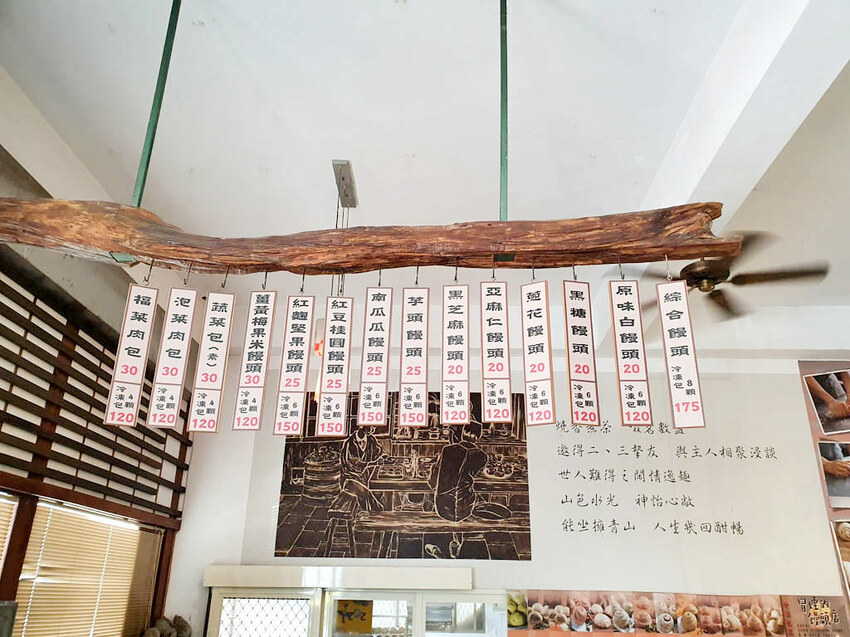 福菜肉包 30 冷凍包 4顆 120
泡菜肉包 30 冷凍包 4顆 120
蔬菜包(素) 30 冷凍包 4顆 120
薑黃梅果米饅頭 30 冷凍包 4顆 120
紅麴堅果饅頭 25 冷凍包 6顆 150
紅豆桂圓饅頭 25 冷凍包 6顆 150
南瓜瓜饅頭 25 冷凍包 6顆 150
芋頭饅頭 25 冷凍包 6顆 150
黑芝麻饅頭 20 冷凍包 6顆 120
亞麻仁饅頭 20 冷凍包 6顆 120
蔥花饅頭 20 冷凍包 6顆 120
黑糖饅頭 20 冷凍包 6顆 120
原味白饅頭 20 冷凍包 6顆 120
綜合饅頭 冷凍包 8顆 175
邀得二、三摯友 與主人相聚浸談
世人難得之閒情逸趣
山色水光 神怡心敞
能坐擁青山 人生幾回酣暢
饅頭店